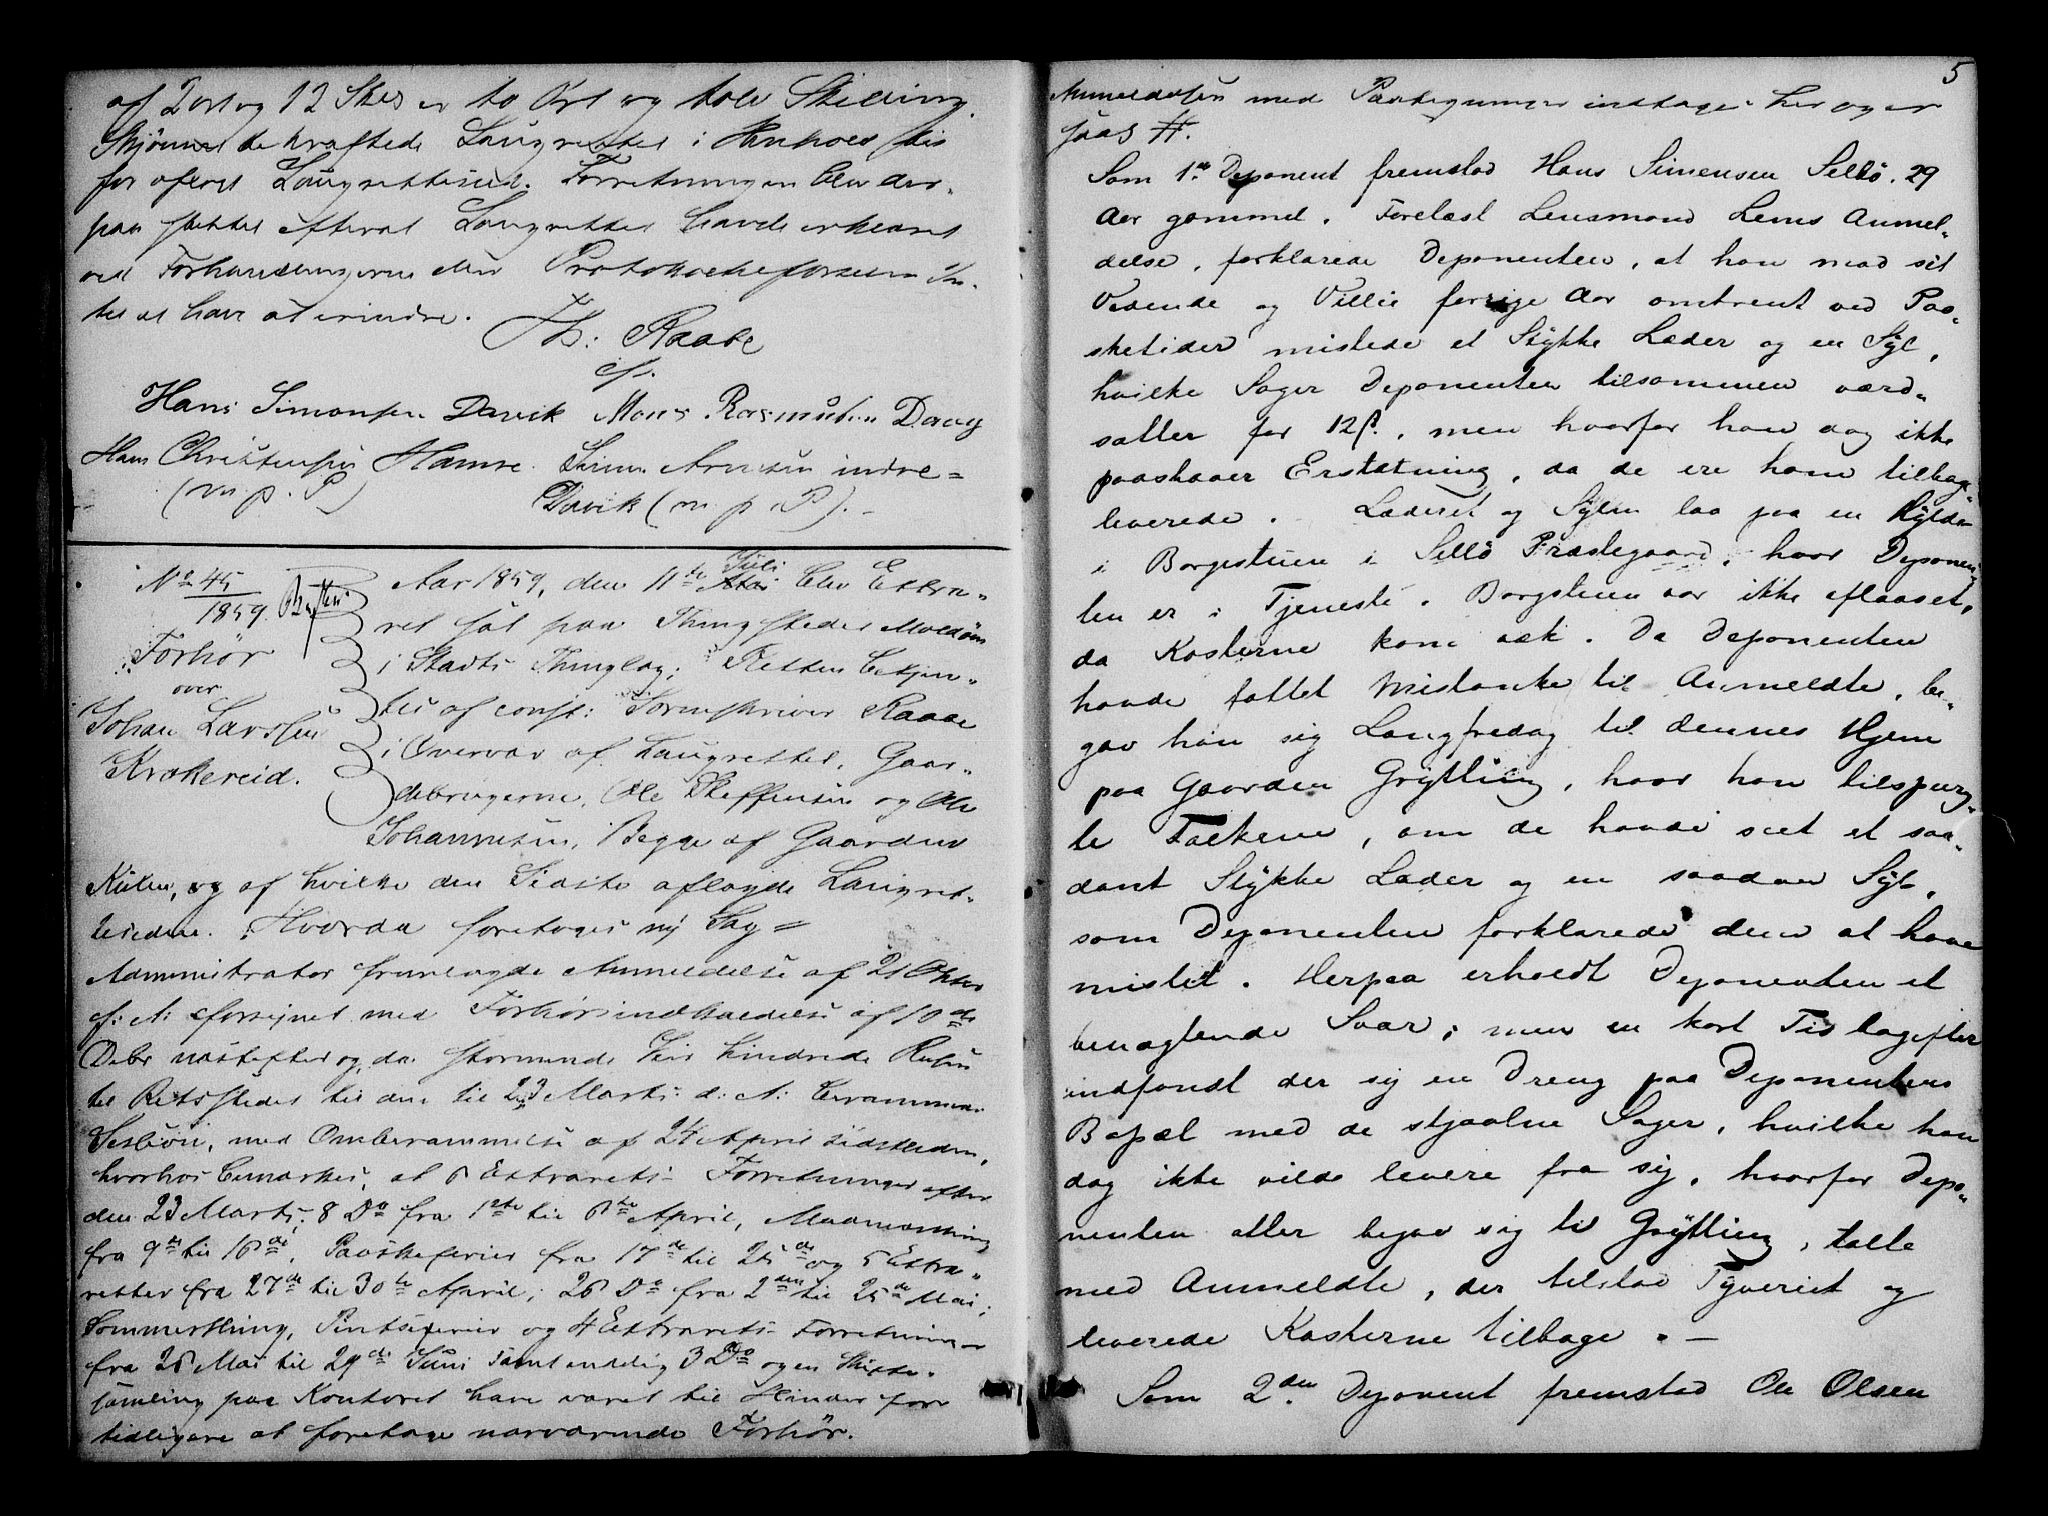 af 2 ort og 12 Skss er to Ort og tolv Skilling.
Skjønnet bekræftede Laugrettet i Henhold til
før aflagt Laugrettesed. Forretningen blev der-
paa sluttet efterat Laugrettet havde erklæret
ved Forhandlingerne eller Protokolleførselen In-
tet at have at erindre.
Th: Raabe
cst.
Hans Simonsen Davik Mons Rasmusen
Hans Christensen Hamre. Arnesen indre-
(m. p. P) Davik (m. p. P).-
No 45/1859
Forhör
over
Johan Larssen
Krokereid.
Aar 1859, den 11te Juli blev Extra-
ret sat paa Thingstedet Moldøen
i Stadts Thinglag; Retten betjen-
tes af const: Sorenskriver Raabe
i Overvær af Laugrettet, Gaar-
debrugerne, Ole Steffensen og Ole
Johannesen, Begge af Gaarden
og af hvilke den Sidste aflagde Laugret-
teseden. Hvorda foretoges ny Sag =
Administrator fremlagde Anmeldelse af 21 Oktbr
f: A: forsynet med Forhørsindkaldelse af 10de
Debr næstefter og, da stormende Veir hindrede Reisen
til Retsstedet til den til 23 Marts d: A: berammede
Session, med Omberammelse af 24 April sidstleden,
hvorhos bemærkes, at 6 Extrarets Forretninger efter
den 23 Marts, 8 Do fra 1ste til 6te April,
fra 9de til 16de, Paaskeferier fra 17de til 25de og 5 Extra-
retter fra 27de til 30te April, 26 Do fra 2den til 25de Mai;
Sommerthing, Pintseferier og 4 Extrarets Forretninger
fra 26 Mai til 29de Juni samt endelig 3 Do og en Skifte-
samling paa Kontoret have været til Hinder for
tidligere at foretage nærværende Forhør.
5
Anmeldelsen med Paategninger indtages her og er
saa #.
Som 1ste Deponent fremstod Hans Simensen Sellö. 29
Aar gammel. Forelæst Lensmand Lems Anmel-
delse, forklarede Deponenten, at han mod sit
Vidende og Villie forrige Aar omtrent ved Paa-
sketider mistede et Stykke Læder og en Syl,
hvilke Sager Deponenten tilsammen værd-
sætter for 12 ß., men hvorfor han dog ikke
paastaaer Erstatning, da de ere ham tilbage-
leverede. Læderet og Sylen laa paa en Hylde
i Borgestuen i Sellö Præstegaard, hvor Deponen-
ten er i Tjeneste. Borgstuen var ikke aflaaset,
da Kosterne kom væk. Da Deponenten
havde fattet Mistanke til Anmeldte, be-
gav han sig Langfredag til dennes Hjem
paa Gaarden Grytting, hvor han tilspurg-
te Folkene, om de havde seet et saa-
dant Stykke Læder og en saadan Syl,
som Deponenten forklarede dem at have
mistet. Herpaa erholdt Deponenten et
benægtende Svar; men en kort Tid bagefter
indfandt der sig en Dreng paa Deponentens
Bopæl med de stjaalne Sager, hvilke han
dog ikke vilde levere fra sig, hvorfor Depo-
nenten atter begav sig til Grytting, talte
med Anmeldte, der tilstod Tyveriet og
leverede Kosterne tilbage. -
Som 2den Deponent fremstod Ole Olsen